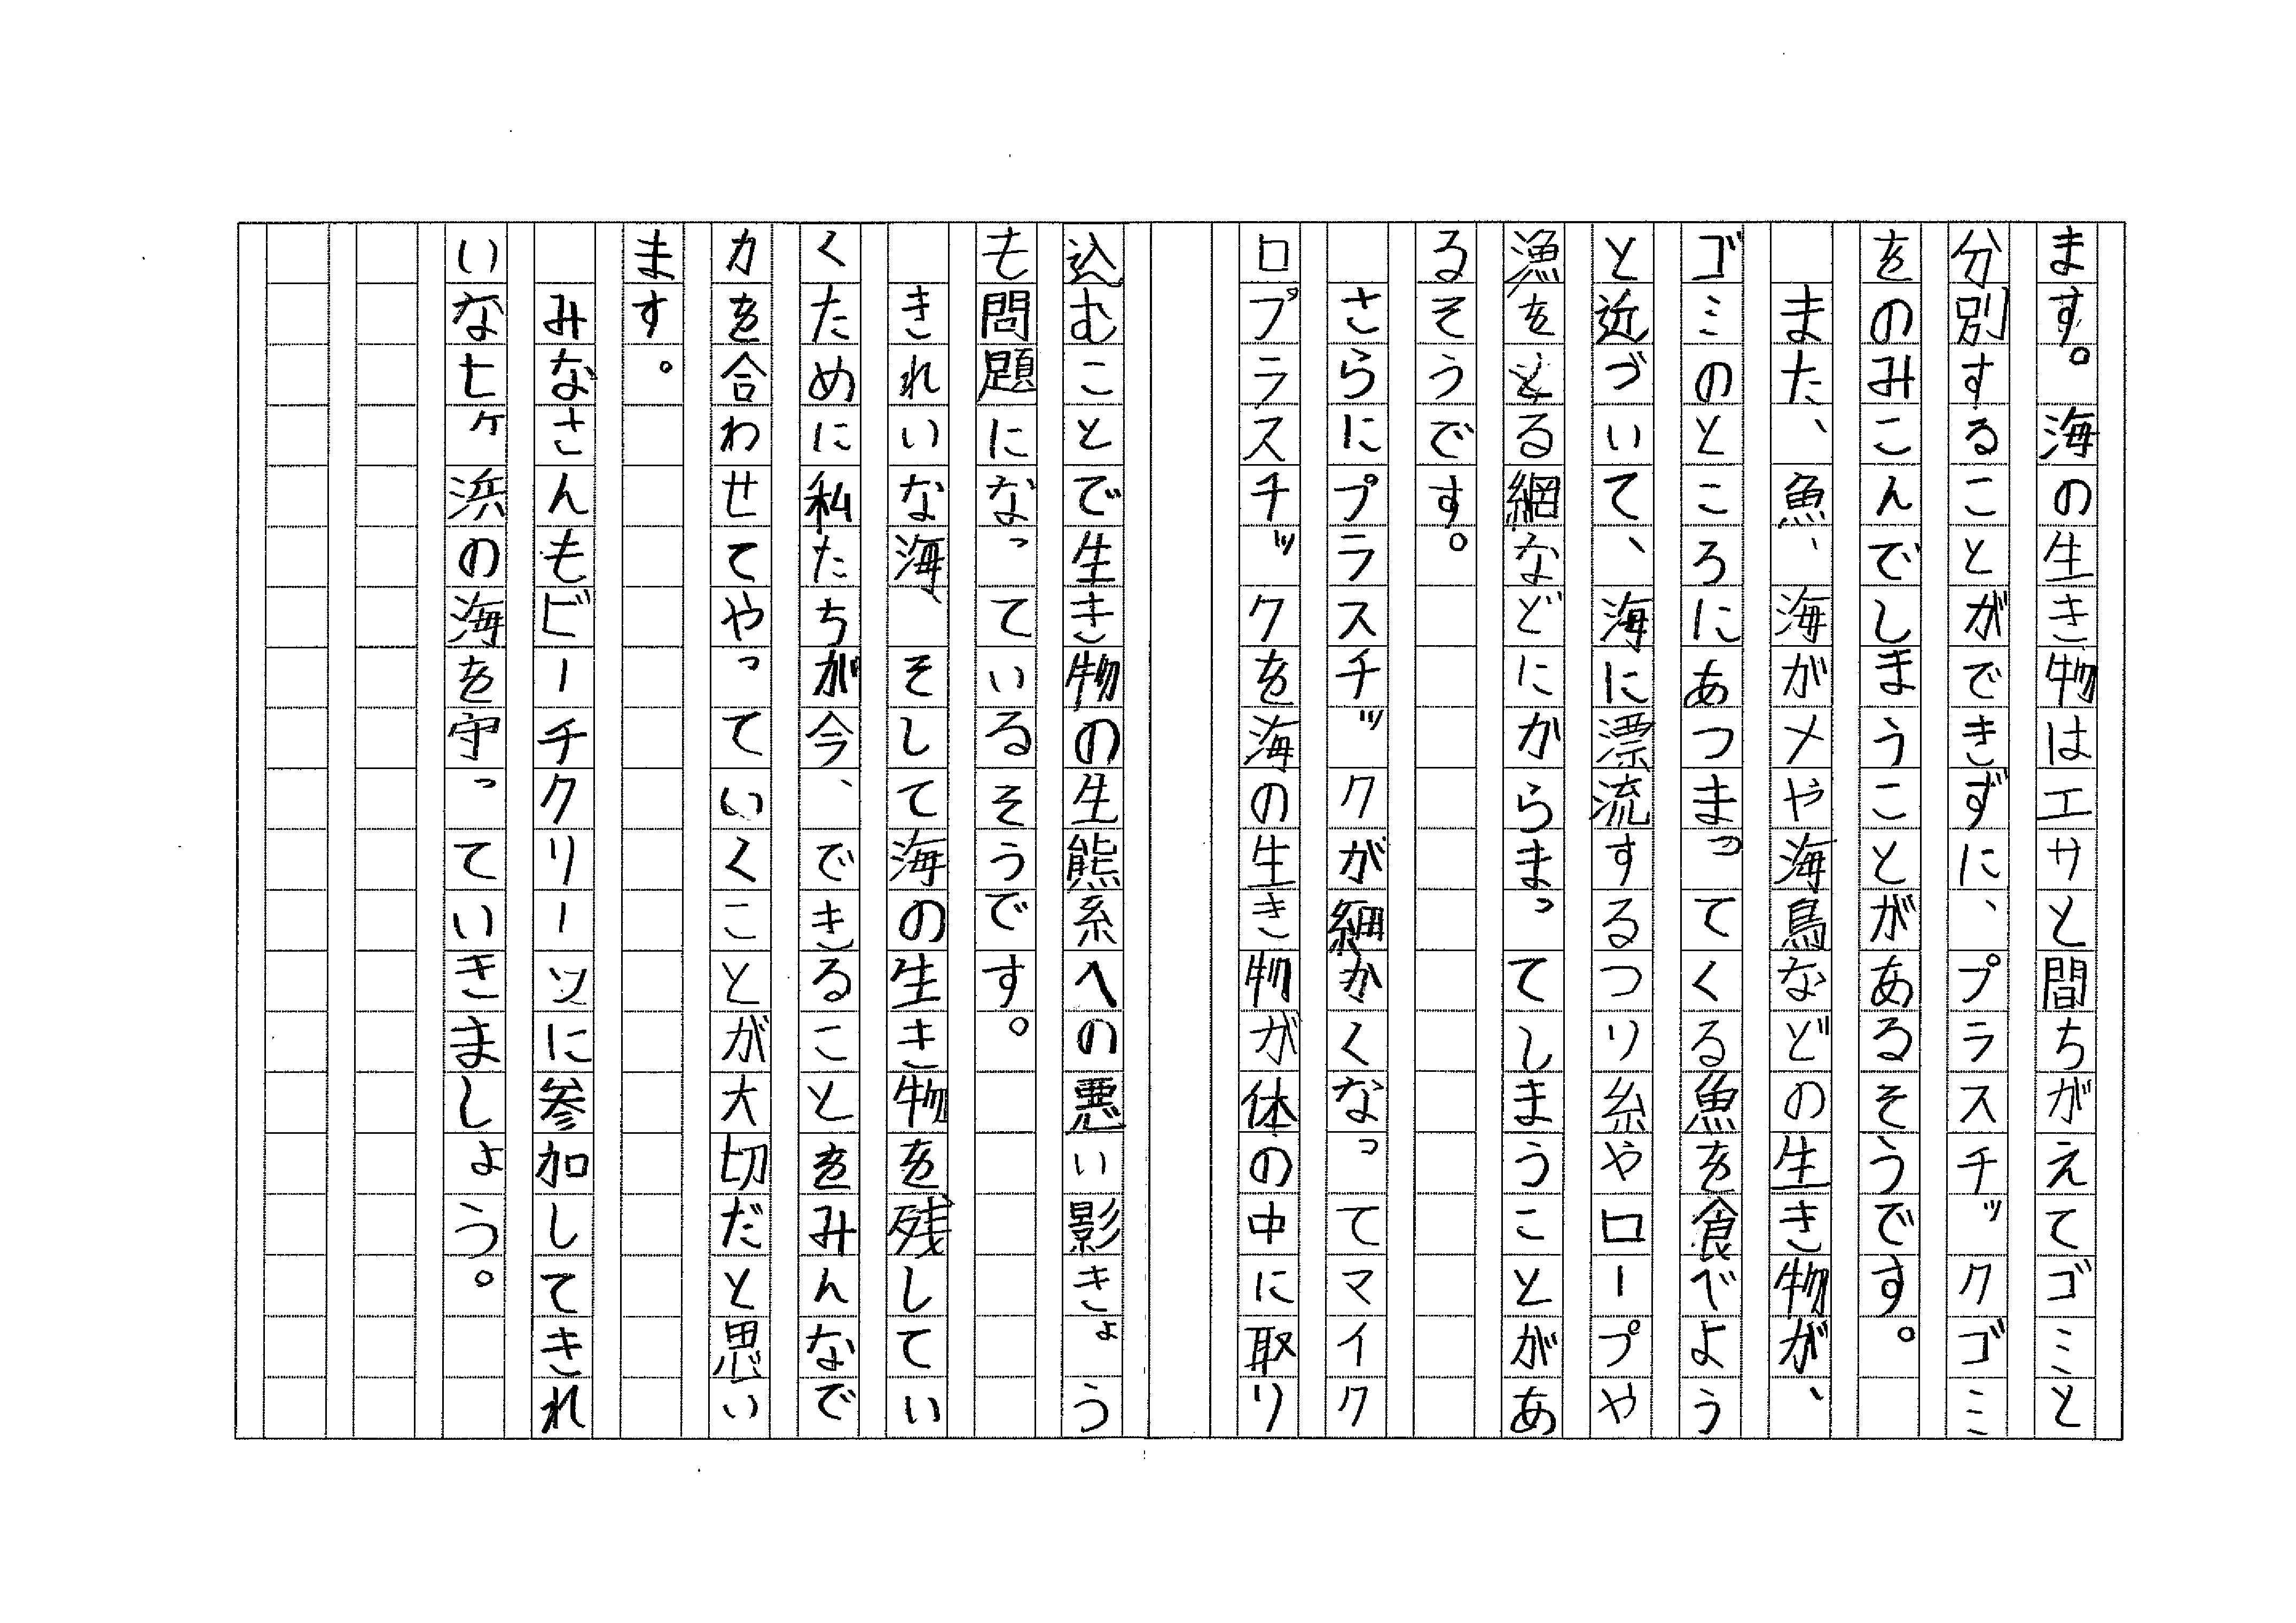 ます。海の生き物はエサと間ちがえてゴミと
分別することができずに、プラスチックゴミ
をのみこんでしまうことがあるそうです。
また、魚、海がメや海鳥などの生き物が、
ゴミのところにあつまってくる魚を食べよう
と近づいて、海に漂流するつり糸やロープや
漁をとる網などにからまってしまうことがあ
るそうです。
さらにプラスチックが細かくなってマイク
ロプラスチックを海の生き物が体の中に取り
込むことで生き物の生熊系への悪い影きょう
も問題になっているそうです。
きれいな海、そして海の生き物を残してい
くために私たちが今、できることをみんなで
力を合わせてやっていくことが大切だと思い
ます。
みなさんもビーチクリーンに参加してきれ
いな七ヶ浜の海を守っていきましょう。